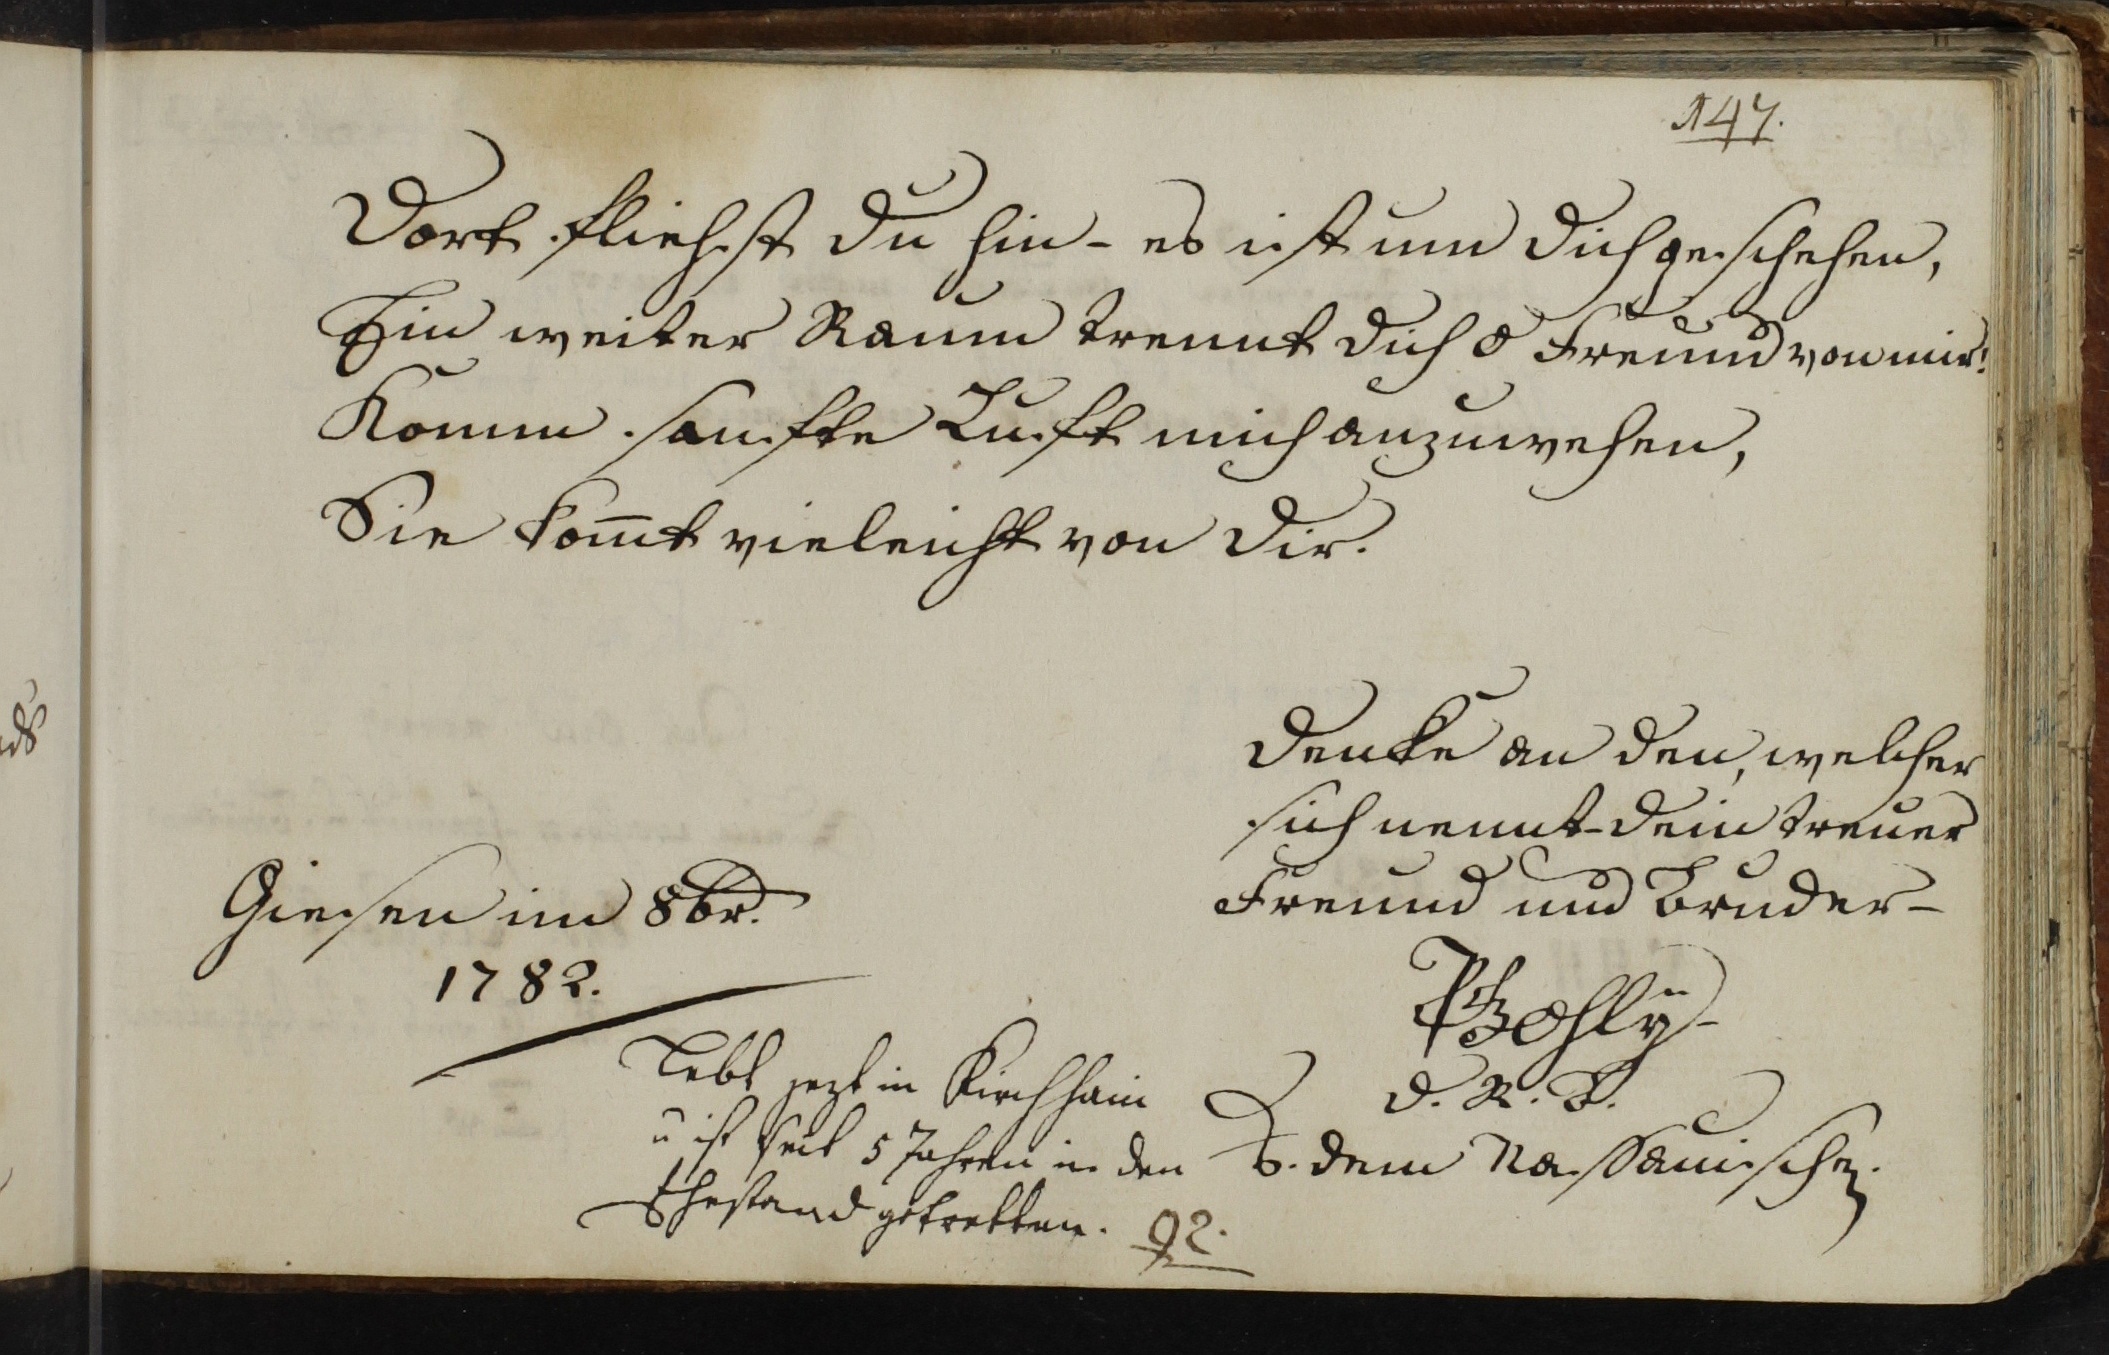 147.
Dort fliehst du hin - es ist um dich geschehen,
Ein weiter Raum trennt dich o Freund von mir!
Komm sanfte Luft mich anzuwehen,
Sie kom̅t vieleicht von dir.
Denke an den, welcher
sich nennt - dein treuer
Freund und Bruder -
Giesen im 8br.
1782.
d. R. B.
a. dem Nassauischen.
Lebt jezt in Kirchhain
u ist seit 5 Jahren in den
Ehestand getretten. 92.